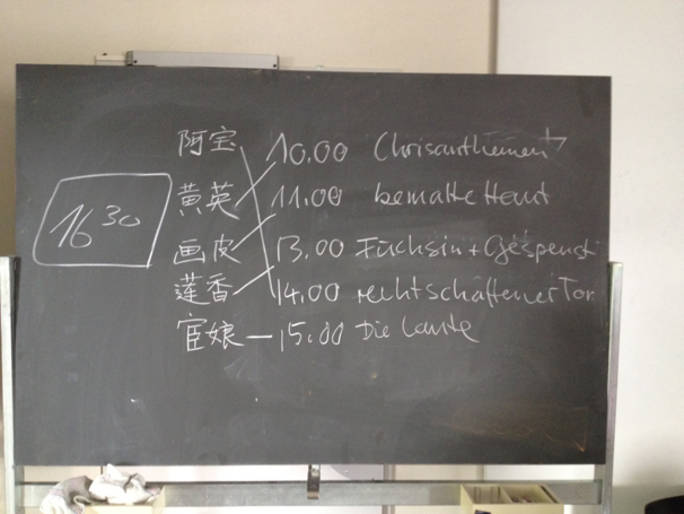 阿宝 10.00 Chrisanthemen
黄英 11.00 bemalte Haut
画皮 13.00 Füchsin + Gespenst
莲香 14.00 rechtschaffener Tor
宦娘 — 15.00 Die Laute
16 30